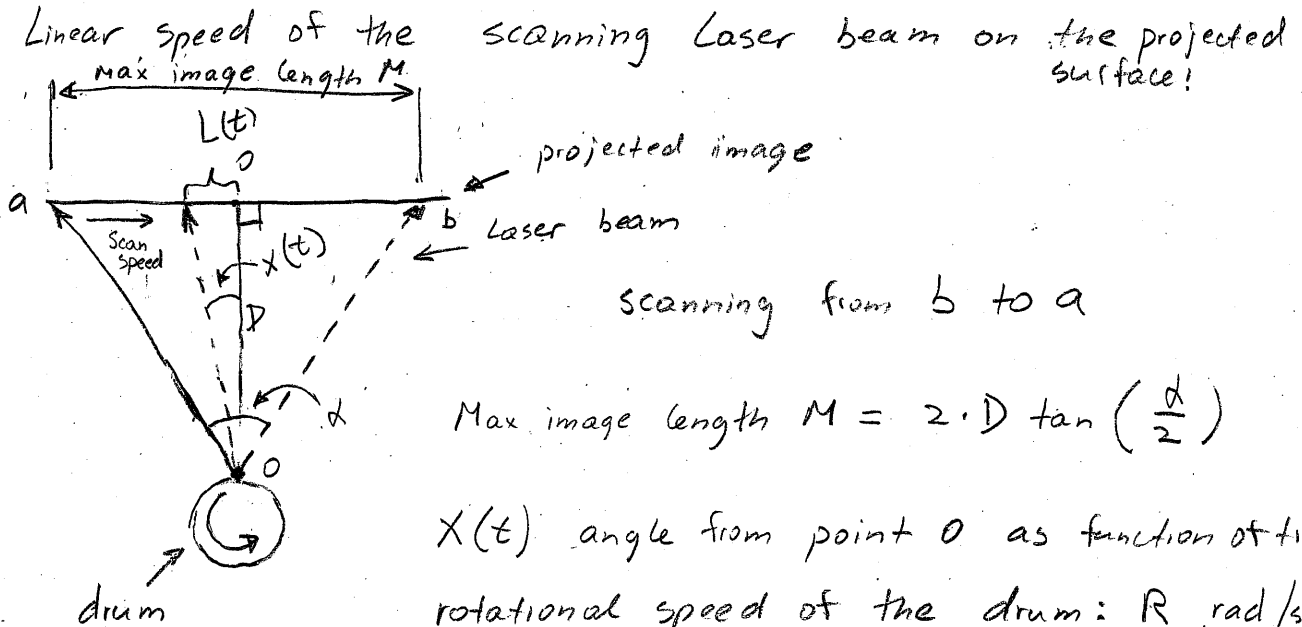 Linear speed of the scanning Laser beam on the projected
surface!
Max image length M
L(t)
O
projected image
a
b
Laser beam
Scan
speed
X(t)
D
scanning from b to a
α
Max image length M = 2·D tan (α/2)
O
X(t) angle from point O as function of ti
rotational speed of the drum: R rad/s
drum